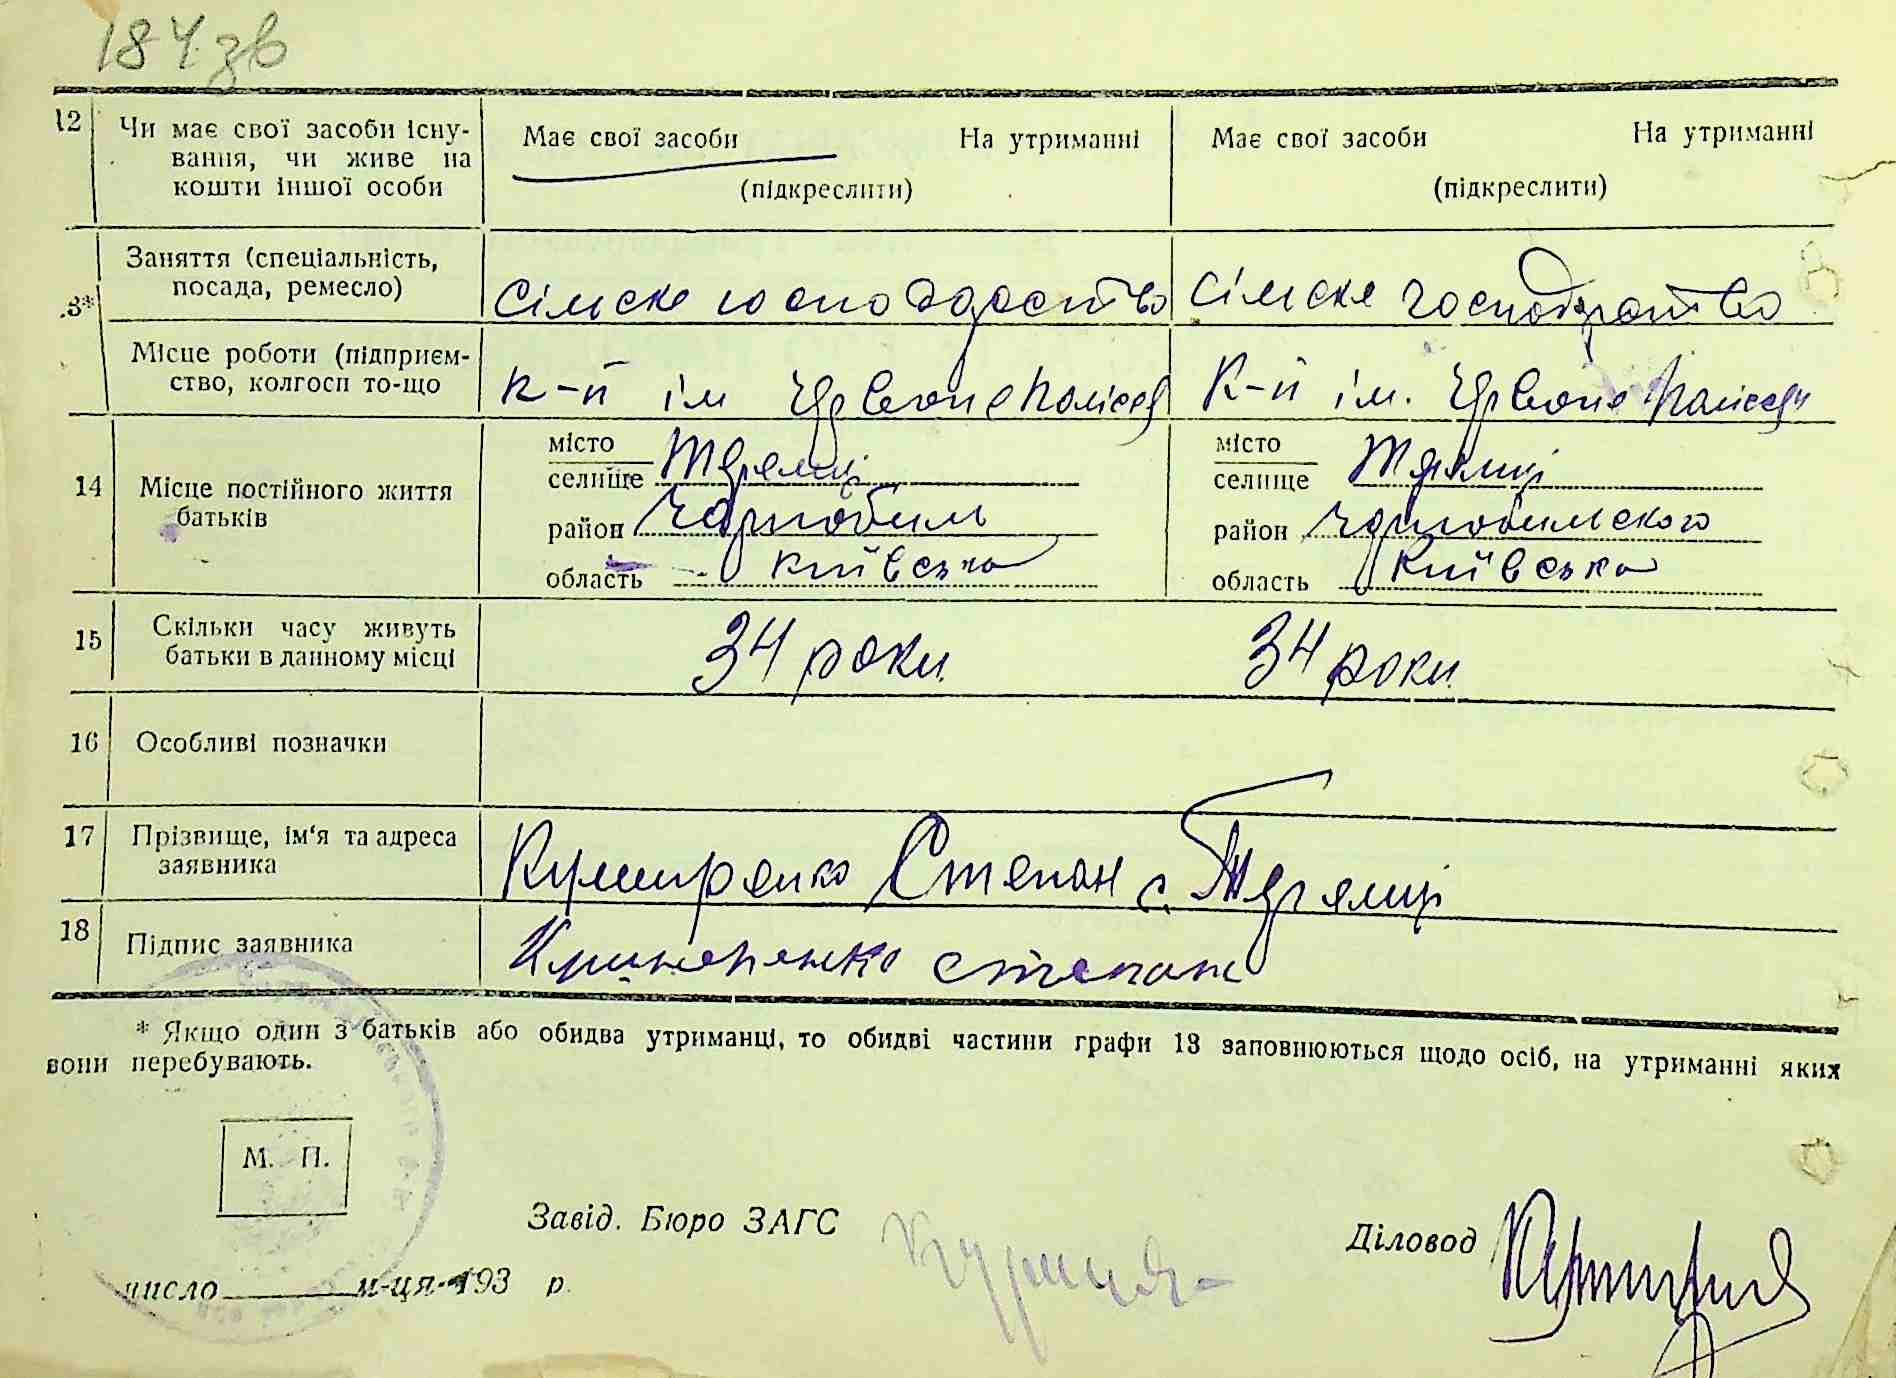 184 зв
12 Чи має свої засоби існу-
вання, чи живе на
кошти іншої особи
Має свої засоби На утриманні
(підкреслити)
Має свої засоби На утриманні
(підкреслити)
.3* Заняття (спеціальність,
посада, ремесло)
Сільске господарство
Сільске господарство
Місце роботи (підприєм-
ство, колгосп то-що
к-п ім Червоне
К-п ім. Червоне
14 Місце постійного життя
батьків
місто
селище Теремці
район Чорнобиль
область Київська
місто
селище Теремці
район Чорнобильского
область Київська
15 Скільки часу живуть
батьки в данному місці
34 роки
34 роки
16 Особливі позначки
17 Прізвище, ім'я та адреса
заявника
Кушнренко Степан с. Теремці
18 Підпис заявника
степан
* Якщо один з батьків або обидва утриманці, то обидві частини графи 13 заповнюються щодо осіб, на утриманні яких
вони перебувають.
М. П.
Завід. Бюро ЗАГС
Діловод
число м-ця 193 р.